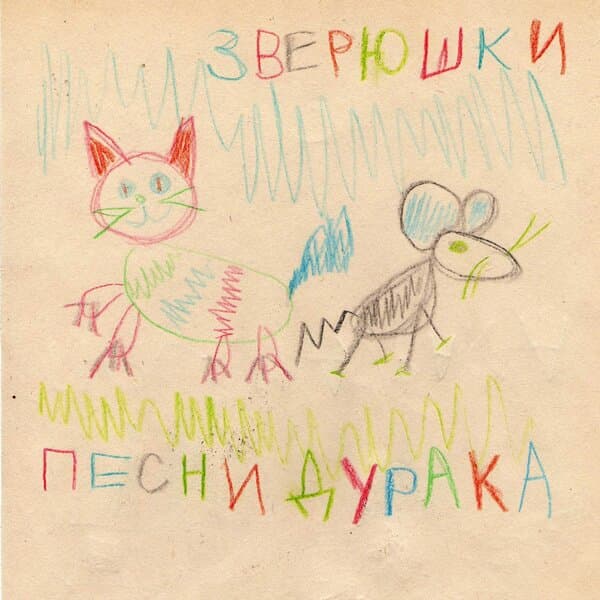 ЗВЕРЮШКИ
ПЕСНИ ДУРАКА